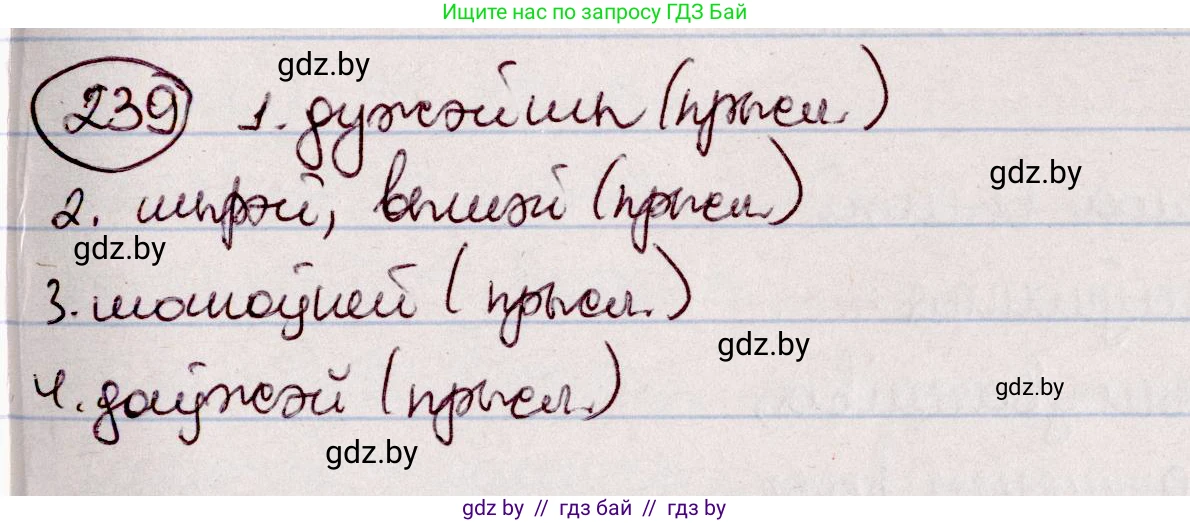 Ищите нас по запросу ГДЗ Бай
gdz.by
239 1. дужэйшы (прысл.)
gdz.by
2. шырэй, вышэй (прысл.)
gdz.by
3. шашоўней (прысл.)
gdz.by
4. даўжэй (прысл.)
gdz.by
gdz.by
gdz.by // гдз бай // gdz.by